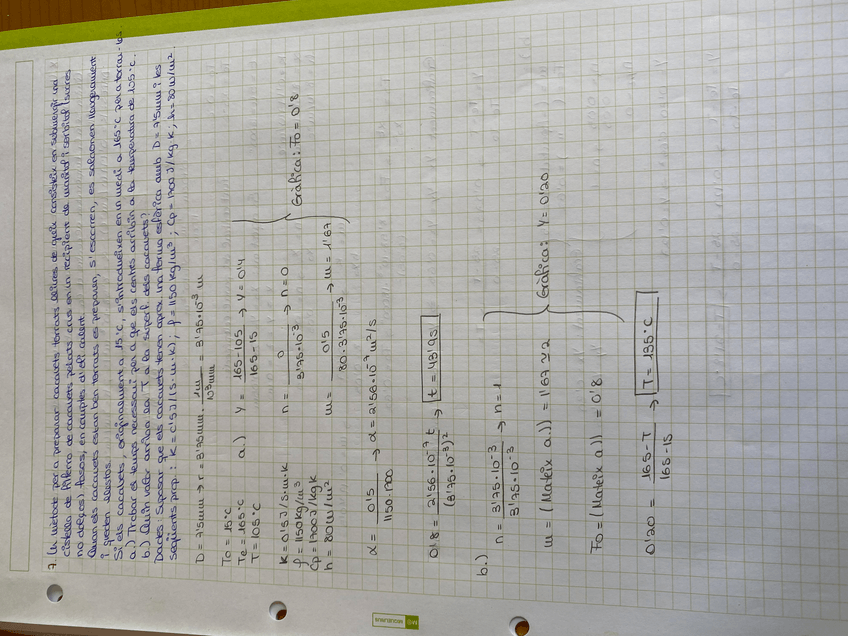 7. Un mètode per a preparar cacauets torrats lliures de greix consisteix en submergir una
cistella de filferro de cacauets pelats crus en un recipient de manitol i sorbitol (sucres
no dolços) fosos, en comptes d'oli calent.
Quan els cacauets estan ben torrats es preparen, s'escorren, es salaonen lleugerament
i queden llestos.
Si els cacauets, originalment a 15°C, s'introdueixen en un medi a 165°C per a torrar-los
a.) Trobar el temps necessari per a que els centres arribin a la temperatura de 105°C.
b.) Quin valor arriba la T a la superf. dels cacauets?
Dades: Suposar que els cacauets tenen aprox una forma esfèrica amb D = 7'5mm i les
següents prop: K = 0'5 J/(s·m·K); ρ = 1150 kg/m³; Cp = 1700 J/kg·K; h = 80 W/m².
D = 7'5mm → r = 3'75mm · 1m / 10³mm = 3'75·10⁻³ m
T0 = 15°C
Te = 165°C
T = 105°C
K = 0'5 J/s·m·K
ρ = 1150 kg/m³
Cp = 1700 J/kg K
h = 80 W/m²
a.) Y = 165-105 / 165-15 → Y = 0'4
n = 0 / 3'75·10⁻³ → n = 0
m = 0'5 / 80·3'75·10⁻³ → m = 1'67
Gràfica: F0 = 0'8
α = 0'5 / 1150·1700 → α = 2'56·10⁻⁷ m²/s
0'8 = 2'56·10⁻⁷ t / (3'75·10⁻³)² → t = 43'9s
b.)
n = 3'75·10⁻³ / 3'75·10⁻³ → n = 1
m = (Mateix a.)) = 1'67 ≃ 2
F0 = (Mateix a)) = 0'8
Gràfica: Y = 0'20
0'20 = 165-T / 165-15 → T = 135°C